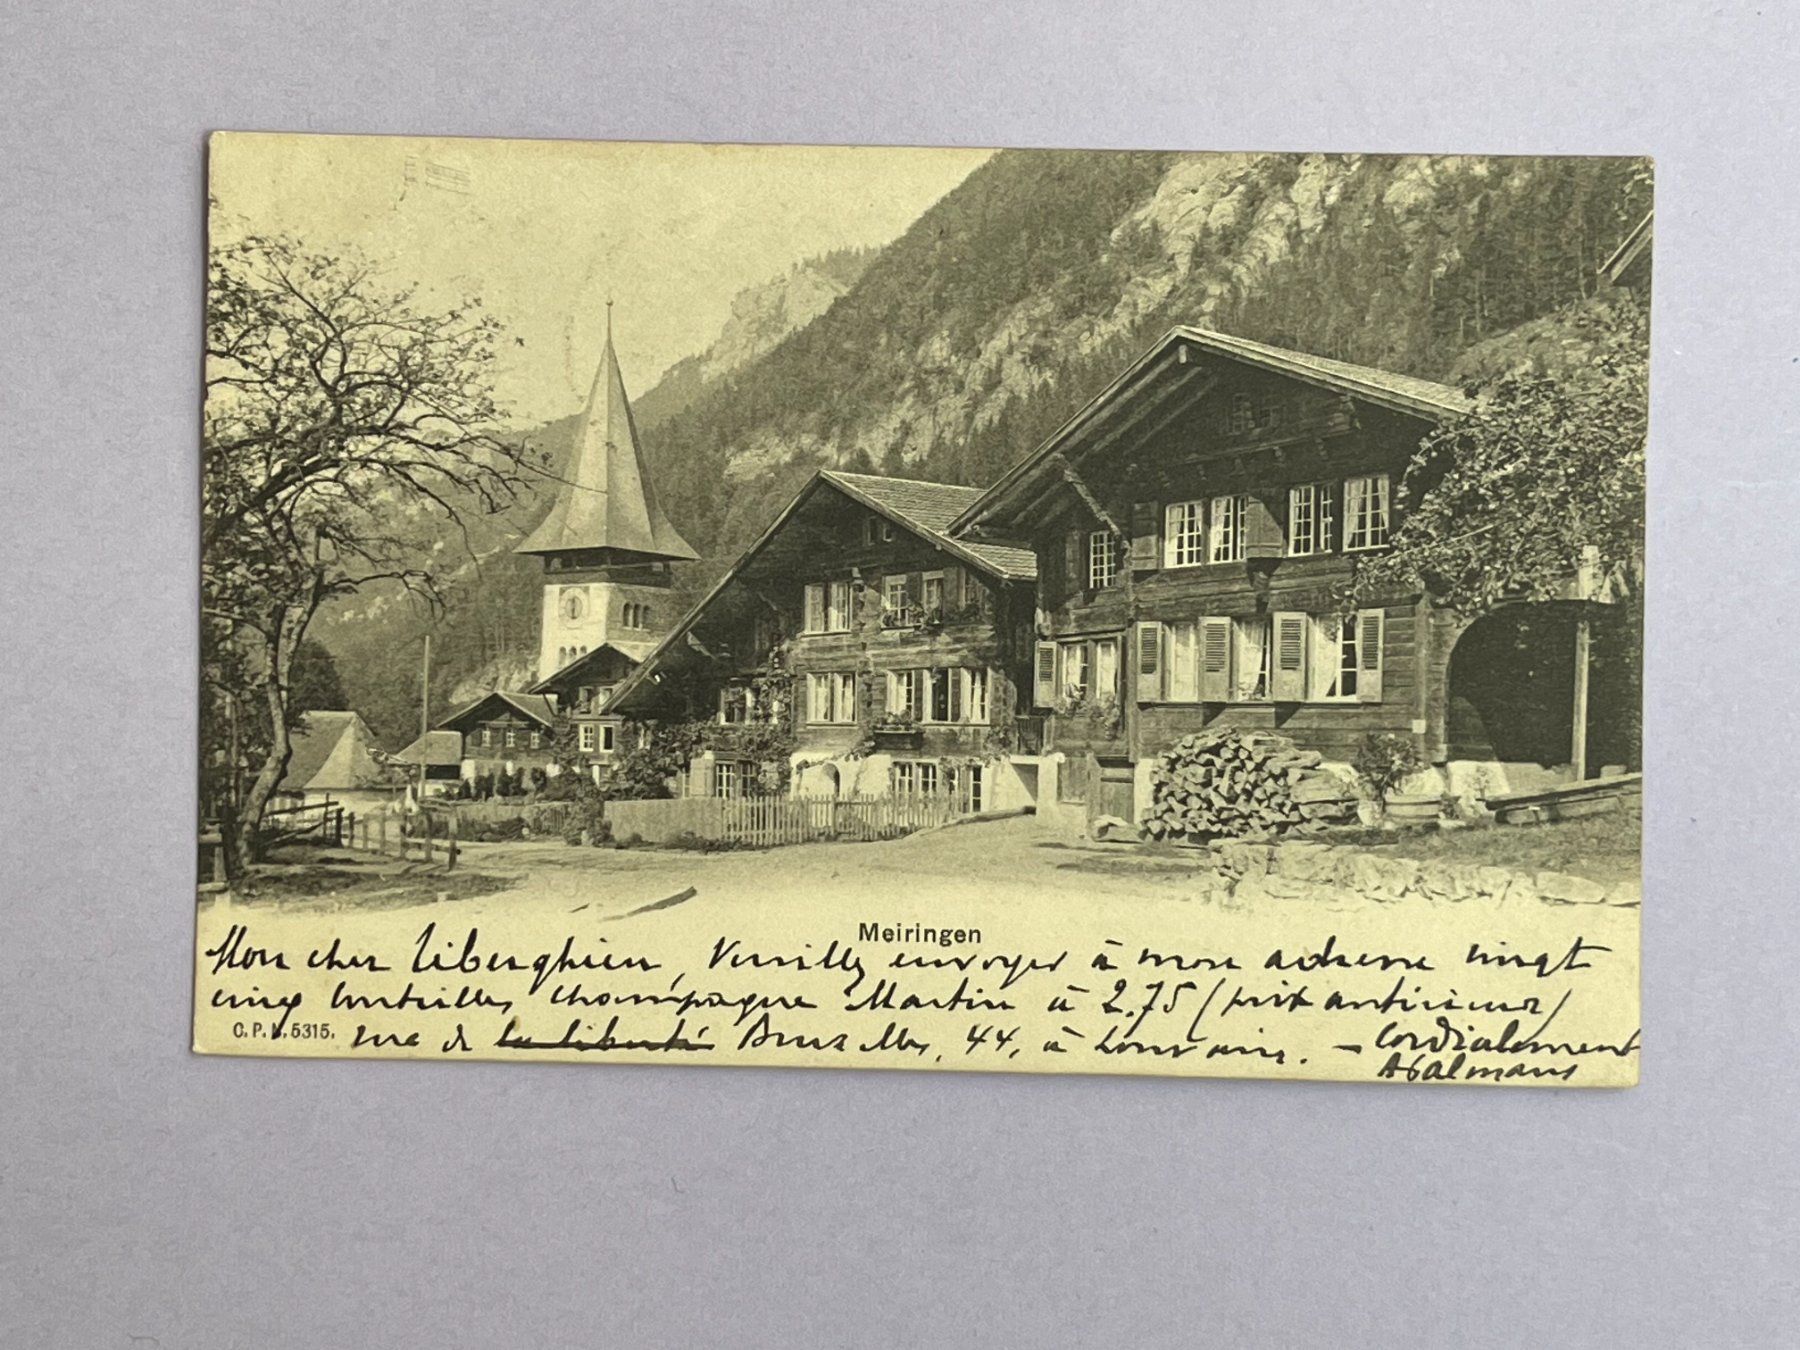 Meiringen
Mon cher Tiberghien, Veuillez envoyer à mon adresse vingt
cinq bouteilles champagne Martin à 2.75 (prix antérieur)
C.P.N. 5315.
rue de la liberté Bruxelles, 44, à Louvain. - Cordialement